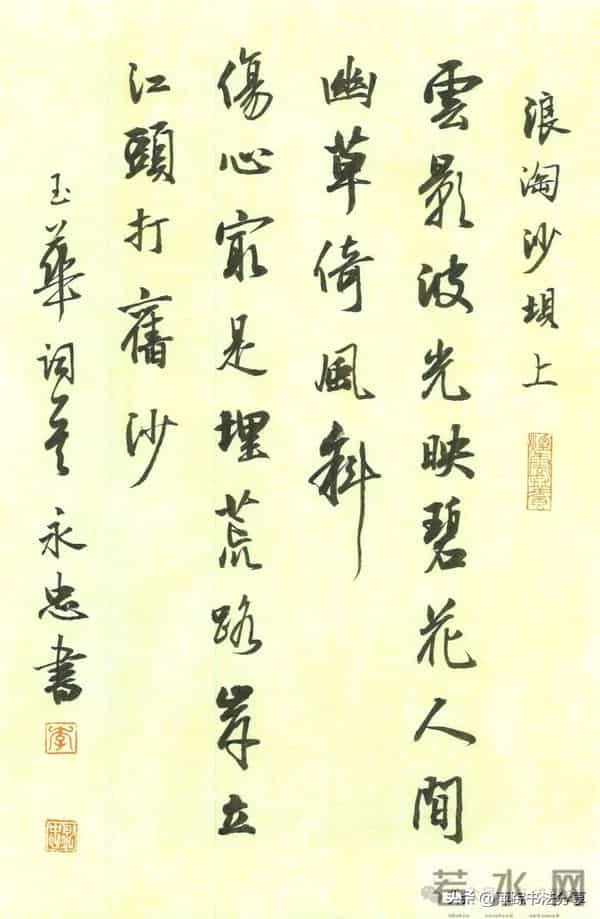 浪淘沙垻上
雲影波光映碧花人間
幽草倚風斜
傷心最是埋荒路岸立
江頭打舊沙
玉華詞李永忠書
李
若水网
头条 书法分享